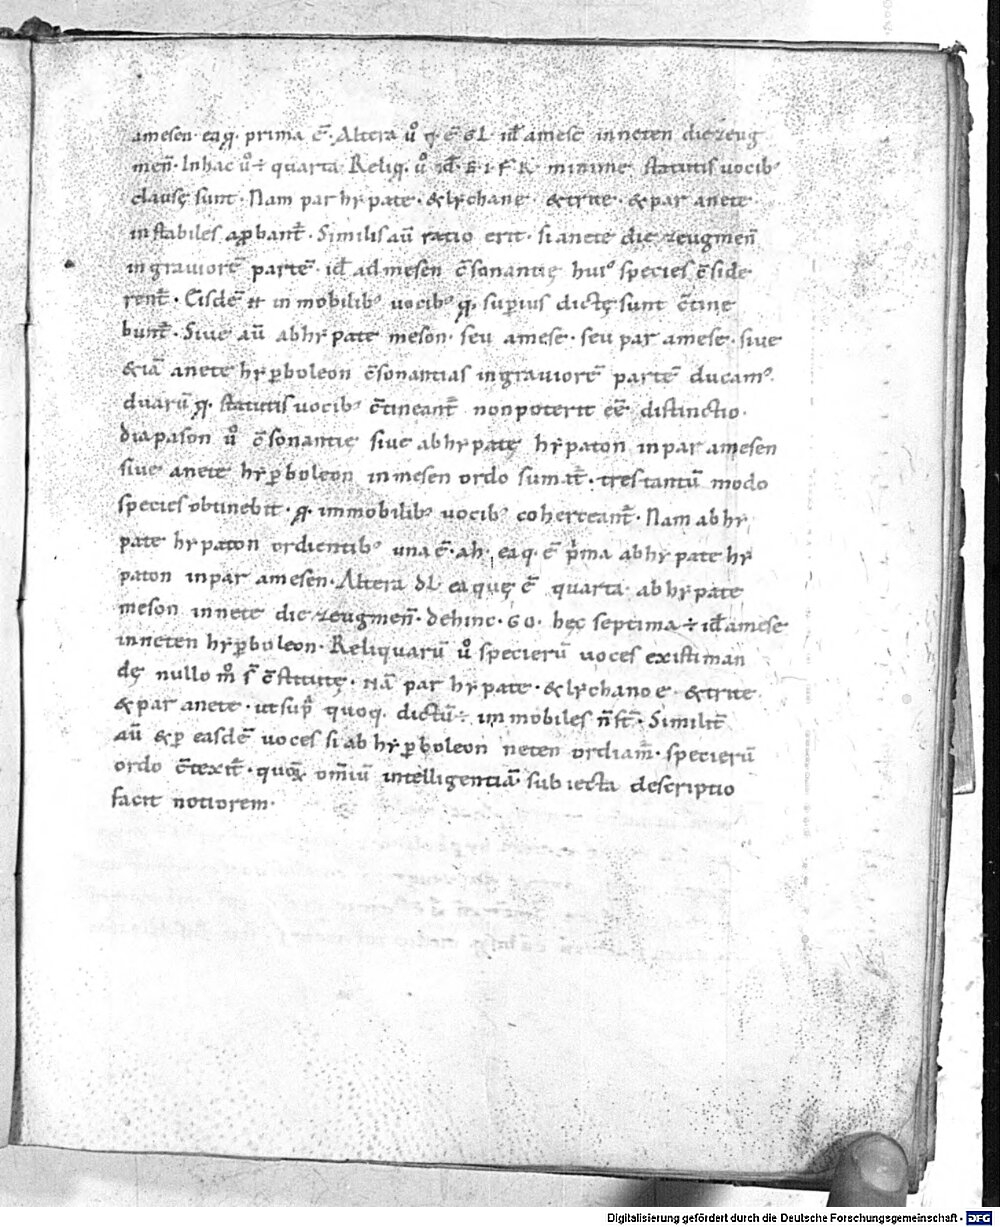 amesen · eaq; prima ē · Altera ů q; ē GL · id̄ amese inneten diezeug
men̄ · In hac ů ÷ quarta Reliq; ů id̄ · E · I · F · K · minime statutis uocib⁹
clausę sunt · Nam par hypate · & lychane · & trite · & par anete ·
instabiles a ꝓbant̄ · Similis aū ratio erit · si anete diezeugmen̄
in grauiorē partē · id̄ ad mesen c̄sonantię hui⁹ species c̄side
rent̄ · Eisdē in mobilib⁹ uocib⁹ q; superius dictę sunt c̄tine
bunt̄ · Siue aū ab hypate meson · seu amese · seu par amese · siue
& iā anete hyꝑboleon c̄sonantias in grauiorē partē ducam⁹ ·
duarū q; statutis uocib⁹ c̄tineant̄ non poterit eē distinctio ·
Diapason ů c̄sonantię siue ab hypatę hypaton in par amesen
siue anete hyꝑboleon in mesen ordo sumat̄ · tres tantū modo
species obtinebit · q; immobilib⁹ uocib⁹ coherceant̄ · Nam ab hy
pate hypaton ordientib⁹ una ē · ah · eaq; ē p̄ma ab hypate hy
paton in par amesen · Altera DL · ea quę ē quarta · ab hypate
meson in nete diezeugmen̄ · dehinc · GO · hęc septima ÷ id̄ amese
inneten hyꝑboleon · Reliquarū ů specierū uoces existiman
dę nullo m̊ s̄ c̄stitutę · nā par hypate · & lychanoe · & trite ·
& par anete · ut sup̄ quoq; dictū ÷ inmobiles n̄ st̄ · Similit̄
aū & ꝑ easdē uoces si ab hyꝑboleon neten ordiam̄ · specierū
ordo c̄texit̄ · quoꝝ om̄iū intelligentiā subiecta descriptio
facit notiorem ·
Digitalisierung gefördert durch die Deutsche Forschungsgemeinschaft - DFG